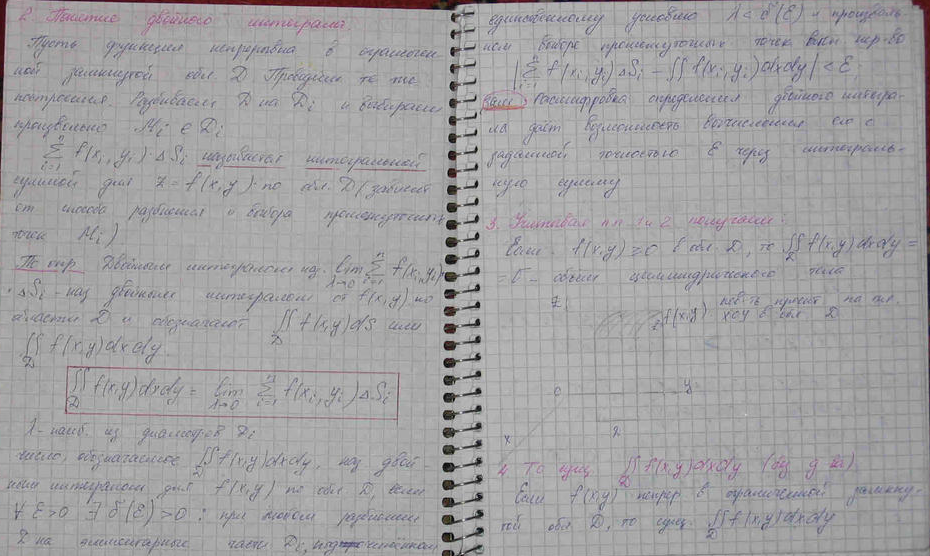 2. Понятие двойного интеграла.
Пусть функция непрерывна в ограничен-
ной замкнутой обл. D Проведем те же
построения. Разбиваем D на Di и выбираем
произвольно Mi ∈ Di
∑ⁿᵢ₌₁ f(xi, yi)·ΔSi называется интегральной
суммой для z = f(x,y) по обл. D (зависит
от способа разбиения и выбора промежуточных
точек Mi)
Двойным интегралом наз. lim λ→0 ∑ⁿᵢ₌₁ f(xi, yi)·
·ΔSi - наз двойным интегралом от f(x,y) по
области D и обозначают ∬_D f(x,y)dS или
∬_D f(x,y)dxdy.
∬_D f(x,y)dxdy = lim λ→0 ∑ⁿᵢ₌₁ f(xi, yi)ΔSi
λ - наиб. из диаметров Di
число, обозначаемое ∬_D f(x,y)dxdy, наз двой-
ным интегралом для f(x,y) по обл D, если
∀ ε>0 ∃ δ(ε)>0 : при любом разбиении
D на элементарные части Di,
единственному условию λ < δ(ε) и произволь-
ном выборе промежуточных точек вып нер-во
|∑ⁿᵢ₌₁ f(xi, yi)ΔSi - ∬ f(xi, yi)dxdy| < ε;
Зам. Расшифровка определения двойного интегра-
ла дает возможность вычисления его с
заданной точностью ε через интеграль-
ную сумму
3. Учитывая п.п. 1 и 2 получаем:
Если f(x,y) ≥ 0 в обл. D, то ∬_D f(x,y)dxdy =
= V - объем цилиндрического тела
z
f(x,y)
пов-ть проект на пл.
xoy в обл D
0
y
x
D
4. Т о сущ. ∬_D f(x,y)dxdy (без д-ва)
Если f(x,y) непрер в ограниченной замкну-
той обл D, то сущ. ∬_D f(x,y)dxdy